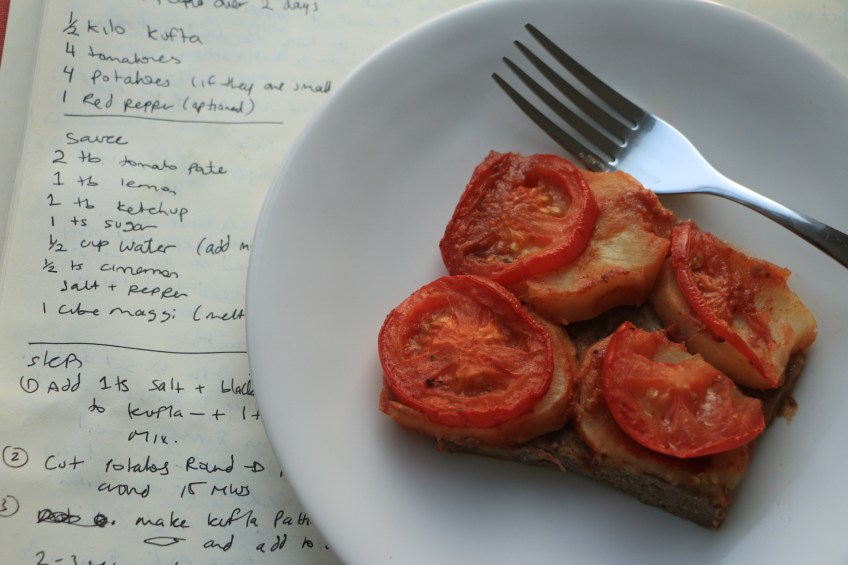 over 2 days
½ kilo kufta
4 tomatores
4 potatoes (if they are small
1 Red pepper (optional)
Sauce
2 tb tomato pate
1 tb lemon
1 tb ketchup
1 ts sugar
½ cup water (add m
½ ts cinemon
salt + pepper
1 cube maggi (melt
steps
① Add 1 ts salt + black
to kufta — + 1 t
Mix.
② Cut potatos Round
around 15 MNS
③ make kufta
and add to
2-3